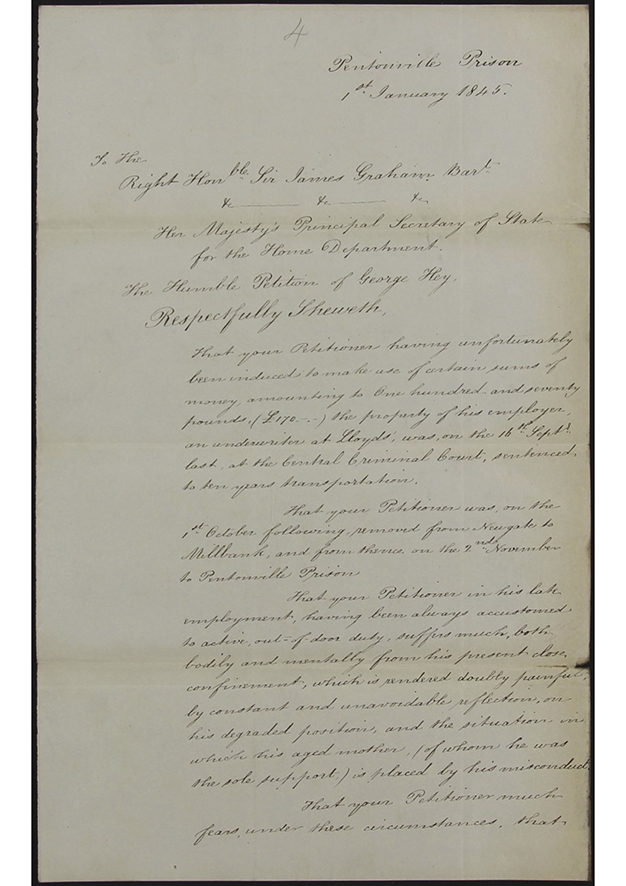 4
Pentonville Prison
1st January 1845.
To The
Right Honble Sir James Graham Bart
&c ——— &c ——— &c
Her Majesty's Principal Secretary of State
for the Home Department.
The Humble Petition of George Hey.
Respectfully Sheweth,
That your Petitioner having unfortunately
been induced to make use of certain sums of
money, amounting to One hundred and seventy
pounds. (£170.-.-) the property of his employer,
an underwriter at Lloyds', was, on the 16th Septr.
last, at the Central Criminal Court, sentenced
to ten years transportation.
That your Petitioner was, on the
1st October following, removed from Newgate to
Millbank, and from thence on the 2nd November
to Pentonville Prison
That your Petitioner in his late
employment, having been always accustomed
to active, out-of door duty, suffers much, both
bodily and mentally from his present close
confinement, which is rendered doubly painful,
by constant and unavoidable reflection, on
his degraded position, and the situation in
which his aged mother, (of whom he was
the sole support) is placed by his misconduct
That your Petitioner much
fears, under these circumstances, that